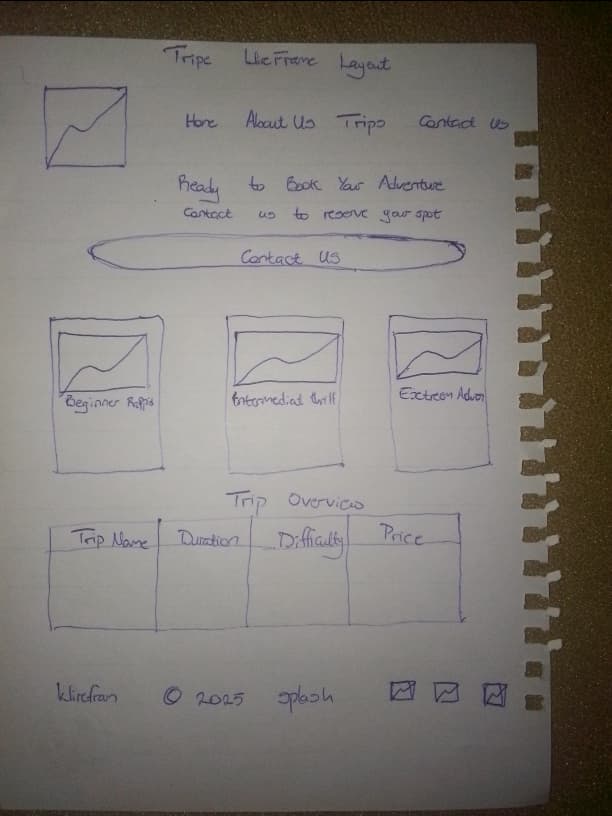 Trips WireFrame Layout
Home About Us Trips Contact us
Ready to Book Your Adventure
Contact us to reserve your spot
Contact us
Beginner
Intermediat thrill
Exctreem Adven
Trip Overview
Trip Name Duration Difficulty Price
Wirefram © 2025 splash